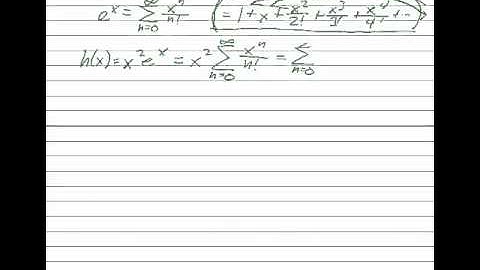 e^x = ∑_{n=0}^{∞} x^n/n! (= 1 + x + x^2/2! + x^3/3! + x^4/4! + ...
h(x) = x^2 e^x = x^2 ∑_{n=0}^{∞} x^n/n! = ∑_{n=0}